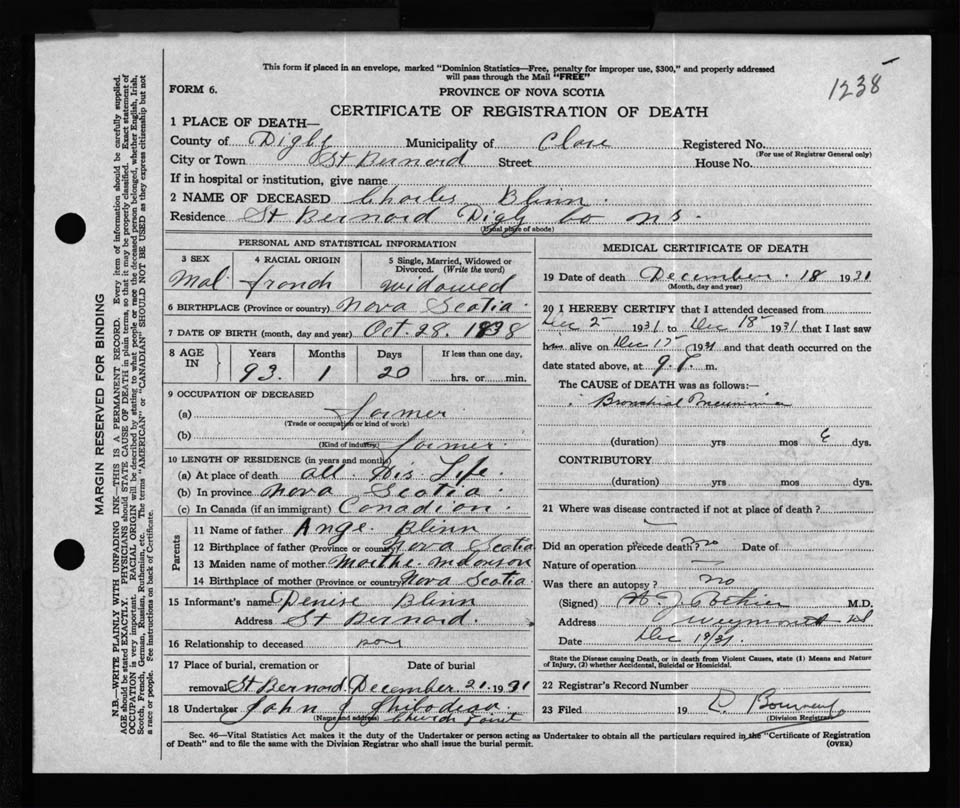 This form if placed in an envelope, marked "Dominion Statistics—Free, penalty for improper use, $300," and properly addressed
will pass through the Mail "FREE"
1238
FORM 6.
PROVINCE OF NOVA SCOTIA
CERTIFICATE OF REGISTRATION OF DEATH
1 PLACE OF DEATH—
County of Digby Municipality of Clare Registered No.
(For use of Registrar General only)
City or Town St Bernard Street House No.
If in hospital or institution, give name
2 NAME OF DECEASED Charles Blinn.
Residence St Bernard Digby Co N S.
(Usual place of abode)
PERSONAL AND STATISTICAL INFORMATION
3 SEX
Mal
4 RACIAL ORIGIN
french
5 Single, Married, Widowed or
Divorced. (Write the word)
widowed
6 BIRTHPLACE (Province or country) Nova Scotia.
7 DATE OF BIRTH (month, day and year) Oct. 28. 1838
8 AGE IN
Years Months Days If less than one day,
93. 1 20 hrs. or min.
9 OCCUPATION OF DECEASED
(a) farmer
(Trade or occupation or kind of work)
(b) farmer.
(Kind of industry)
10 LENGTH OF RESIDENCE (in years and months)
(a) At place of death all His Life.
(b) In province Nova Scotia.
(c) In Canada (if an immigrant) Canadian.
Parents
11 Name of father Ange. Blinn
12 Birthplace of father (Province or country) Nova Scotia
13 Maiden name of mother Marthe
14 Birthplace of mother (Province or country) Nova Scotia
15 Informant's name Denise Blinn
Address St Bernard.
16 Relationship to deceased
17 Place of burial, cremation or Date of burial
removal St Bernard. December 21. 1931
18 Undertaker John J Thibodeau
(Name and address) Church Point
MEDICAL CERTIFICATE OF DEATH
19 Date of death December. 18 1931
(Month, day and year)
20 I HEREBY CERTIFY that I attended deceased from
Dec 2 1931 to Dec 18 1931 that I last saw
him alive on Dec 17 1931 and that death occurred on the
date stated above, at 9. m.
The CAUSE of DEATH was as follows:—
Bronchial Pneumonia
(duration) yrs mos dys.
CONTRIBUTORY
(duration) yrs mos dys.
21 Where was disease contracted if not at place of death?
Did an operation precede death? no Date of
Nature of operation
Was there an autopsy? no
(Signed) Pothier M.D.
Address Weymouth
Date Dec 19/31.
State the Disease causing Death, or in death from Violent Causes, state (1) Means and Nature
of Injury, (2) whether Accidental, Suicidal or Homicidal.
22 Registrar's Record Number
23 Filed 19
(Division Registrar)
Sec. 46—Vital Statistics Act makes it the duty of the Undertaker or person acting as Undertaker to obtain all the particulars required in the "Certificate of Registration
of Death" and to file the same with the Division Registrar who shall issue the burial permit.
(OVER)
MARGIN RESERVED FOR BINDING
N.B.—WRITE PLAINLY WITH UNFADING INK—THIS IS A PERMANENT RECORD. Every item of information should be carefully supplied.
AGE should be stated EXACTLY. PHYSICIANS should STATE CAUSE OF DEATH in plain terms, so that it may be properly classified. Exact statement of
OCCUPATION is very important. RACIAL ORIGIN will be described by stating to what people or race the deceased person belonged, whether English, Irish,
Scotch, French, German, Russian, Ruthenian, etc. The terms "AMERICAN" or "CANADIAN" SHOULD NOT BE USED as they express citizenship but not
a race or people. See instructions on back of Certificate.